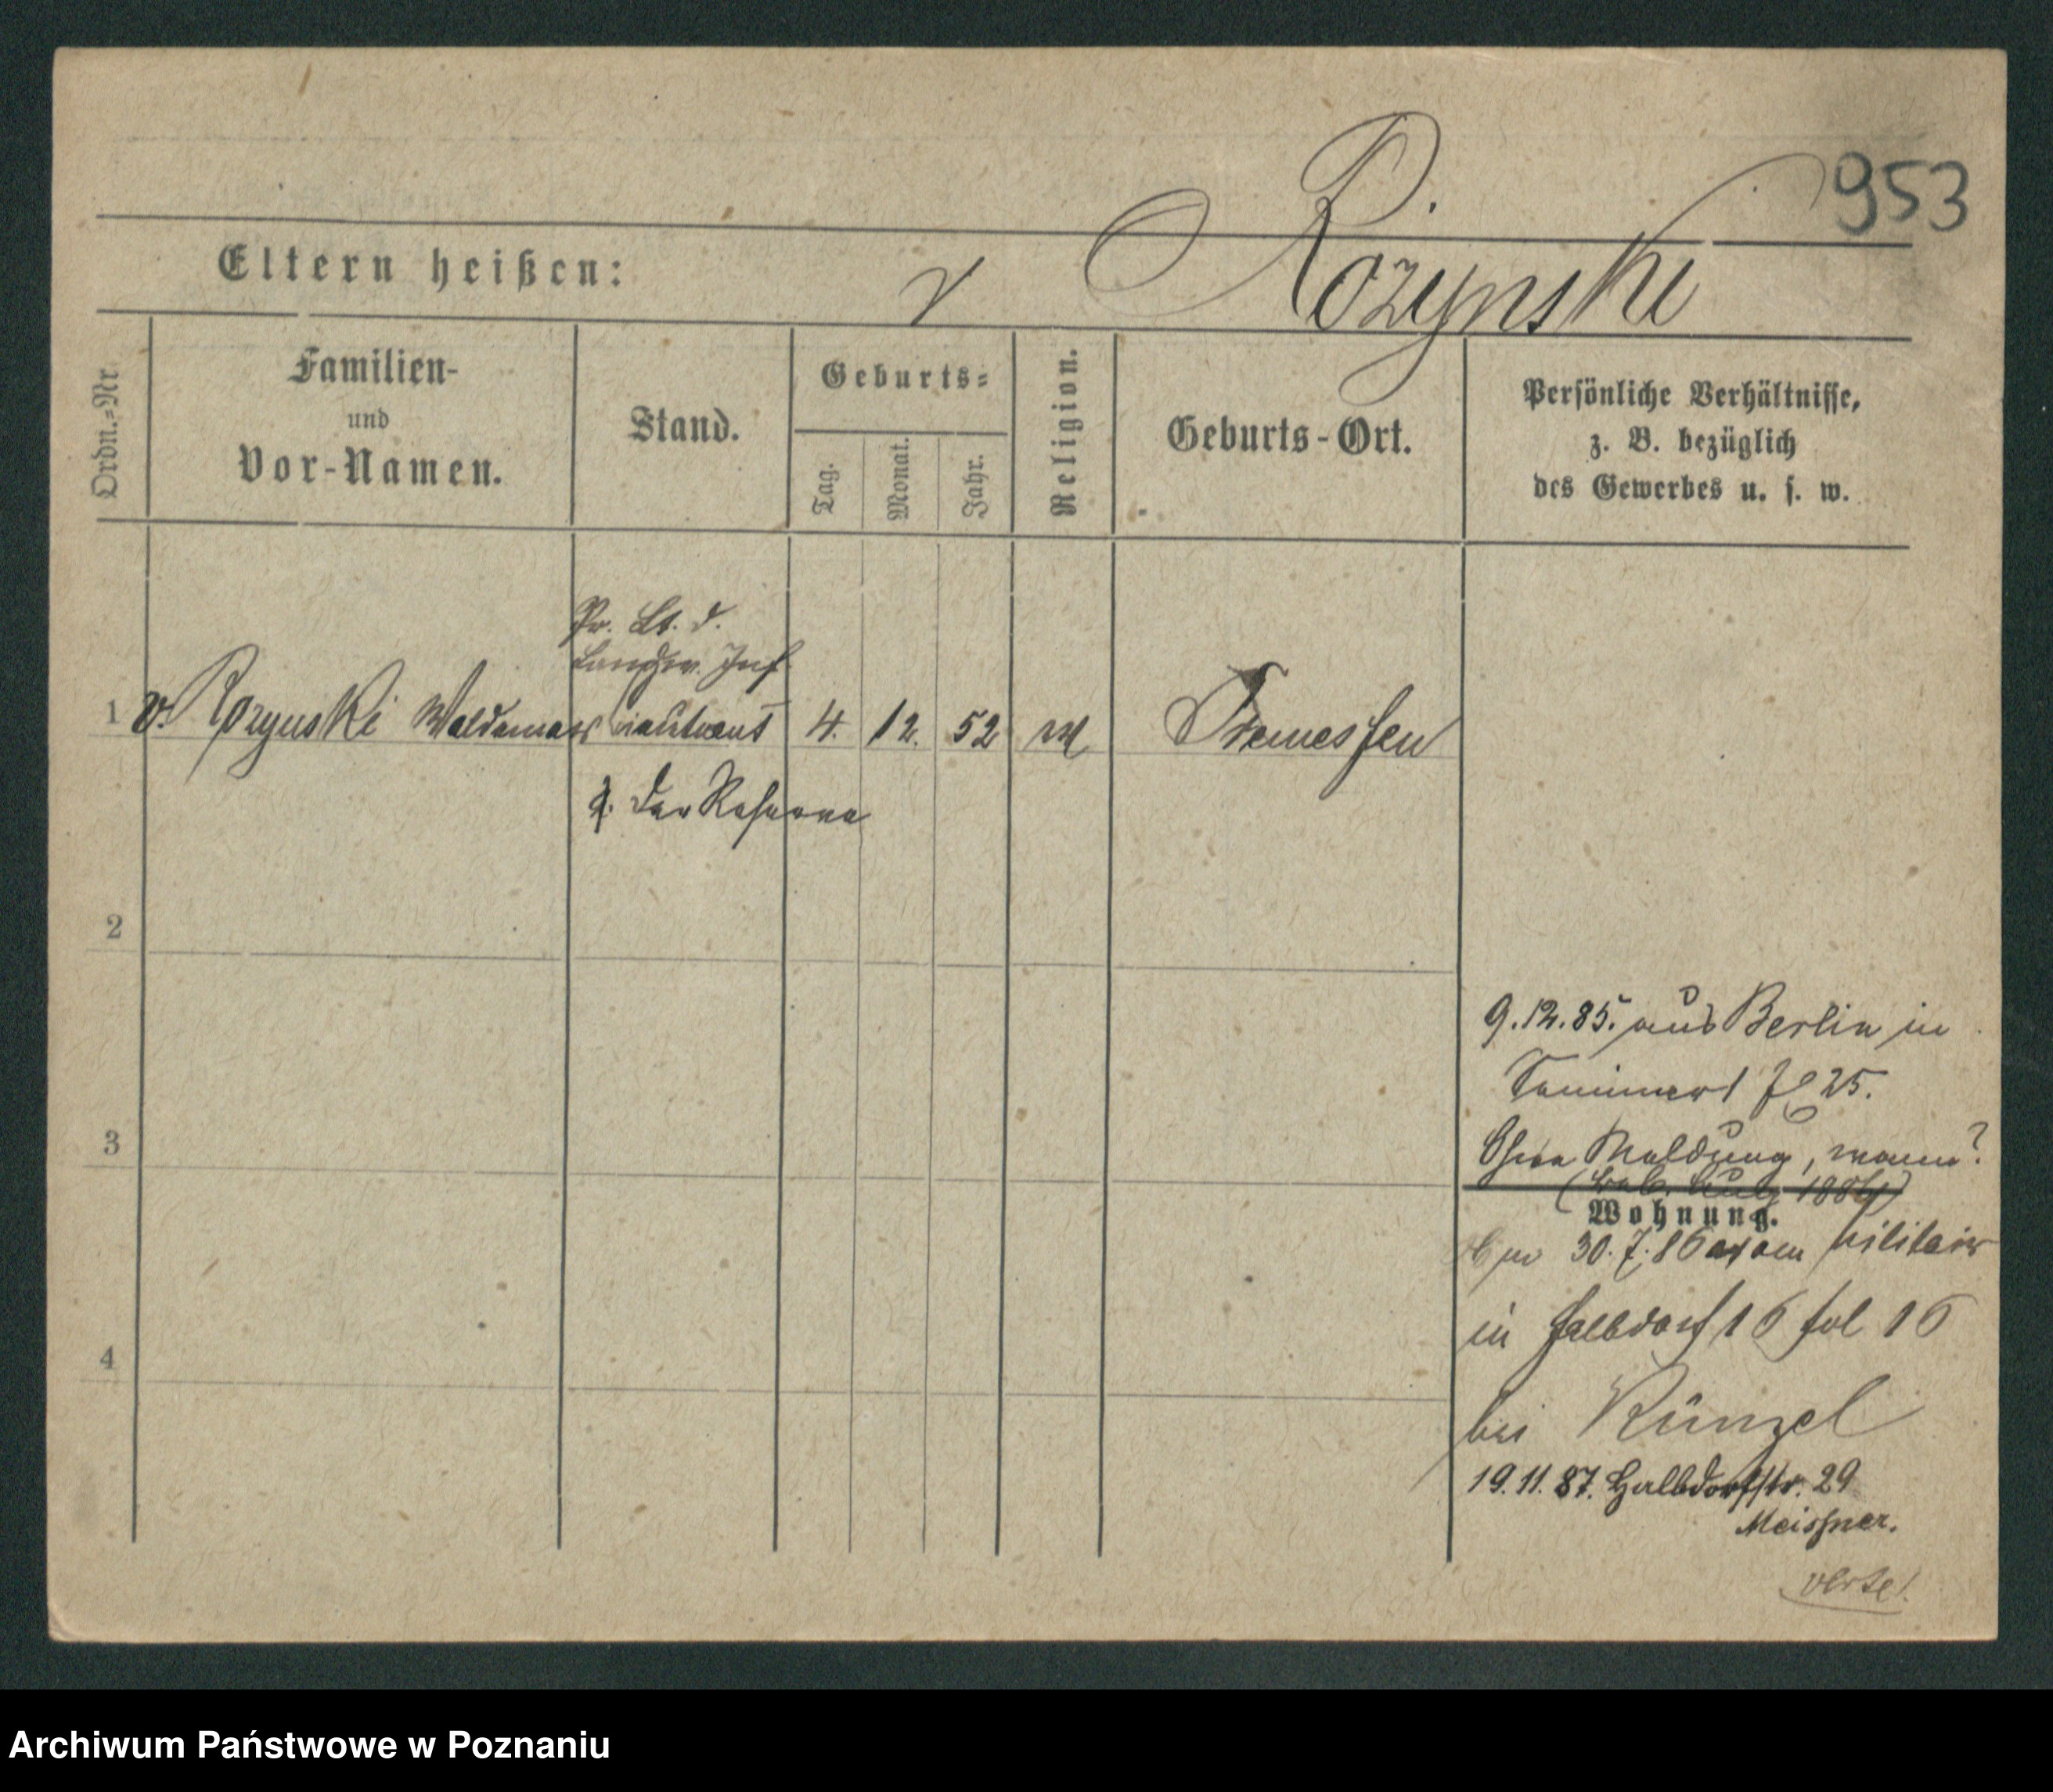 953
Eltern heißen: v Rozynski
Ordn.=Nr.
Familien-
und
Vor-Namen.
Stand.
Geburts=
Tag.
Monat.
Jahr.
Religion.
Geburts-Ort.
Persönliche Verhältnisse,
z. B. bezüglich
des Gewerbes u. s. w.
Pr. Lt. d.
Landw. Inf
1 v. Rozynski Waldemar 4. 12. 52 Tremessen
der Reserve
2
3
4
9.12.85. aus Berlin in
25.
Ohne Meldung, wann?
Wohnung.
30. 7. 86 vom Militair
in Halbdorf 16 fol 16
bei Künzel
19. 11. 87. Halbdorfstr. 29
Meissner.
Archiwum Państwowe w Poznaniu